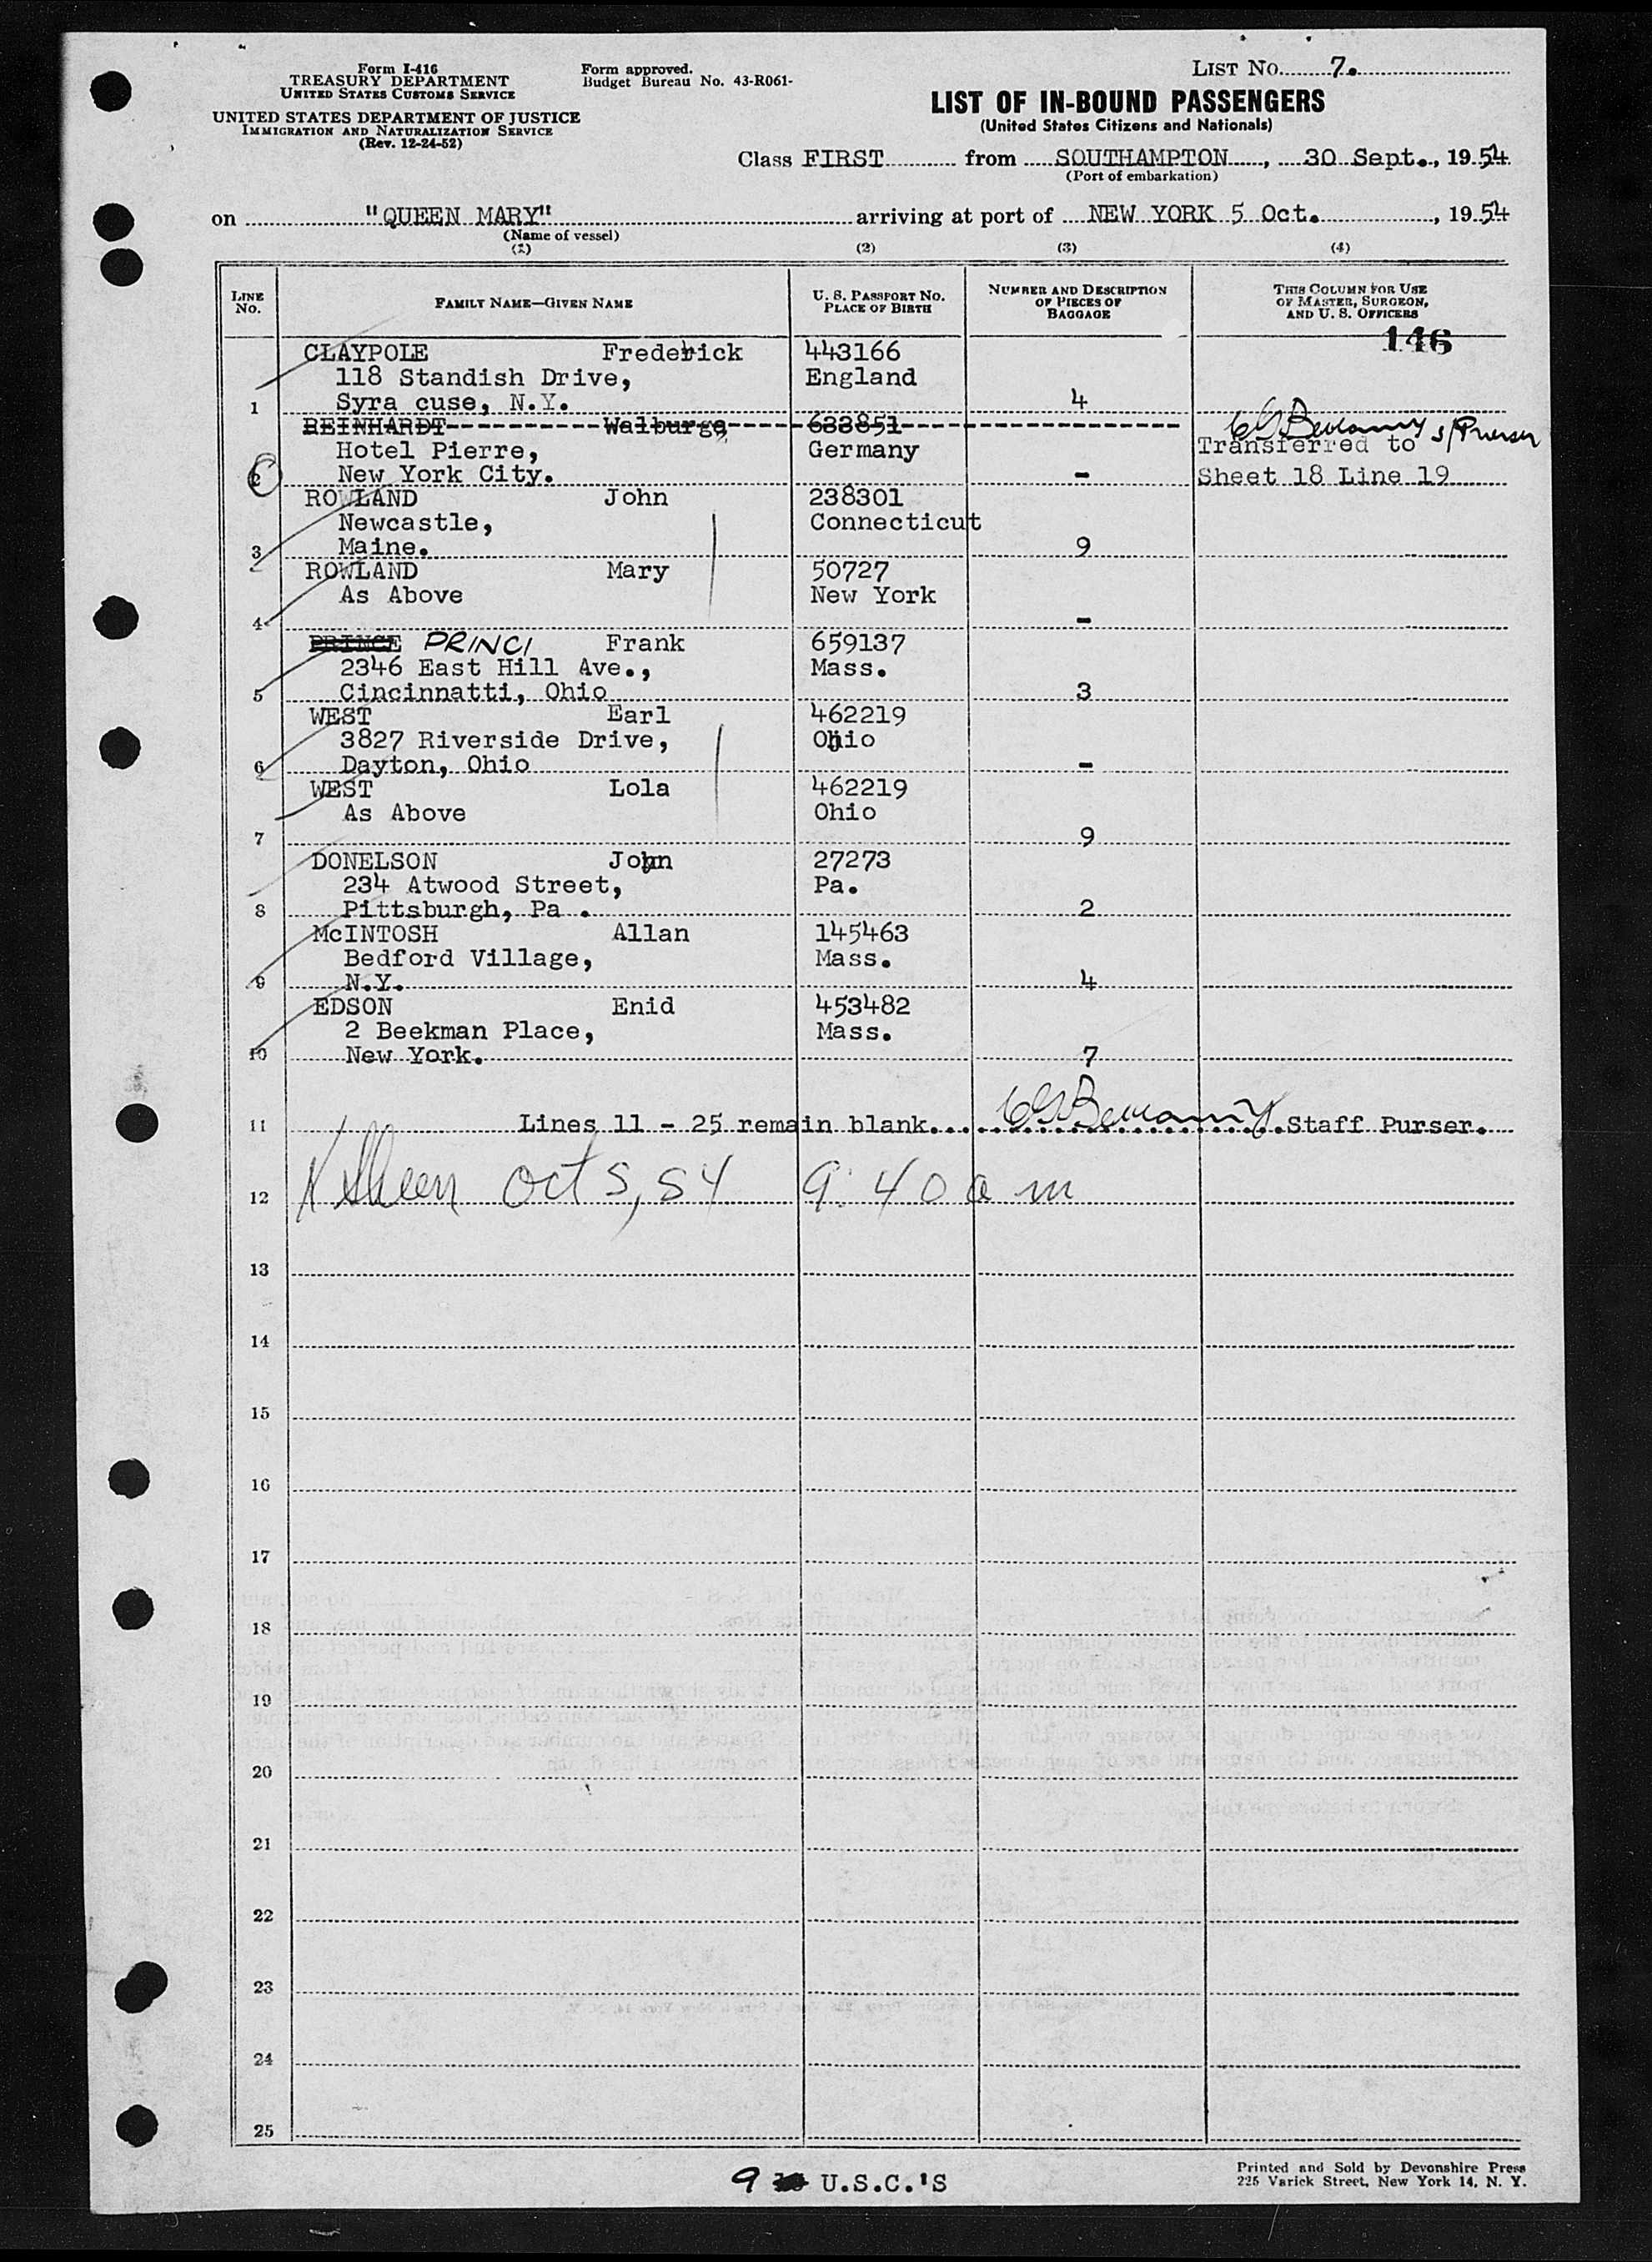 Form I-416
TREASURY DEPARTMENT
UNITED STATES CUSTOMS SERVICE
UNITED STATES DEPARTMENT OF JUSTICE
IMMIGRATION AND NATURALIZATION SERVICE
(Rev. 12-24-52)
Form approved.
Budget Bureau No. 43-R061-
LIST NO. 7.
LIST OF IN-BOUND PASSENGERS
(United States Citizens and Nationals)
Class FIRST from SOUTHAMPTON, 30 Sept., 1954
(Port of embarkation)
on "QUEEN MARY" arriving at port of NEW YORK 5 Oct., 1954
(Name of vessel)
(1) (2) (3) (4)
LINE NO.
FAMILY NAME—GIVEN NAME
U. S. PASSPORT NO.
PLACE OF BIRTH
NUMBER AND DESCRIPTION
OF PIECES OF
BAGGAGE
THIS COLUMN FOR USE
OF MASTER, SURGEON,
AND U. S. OFFICERS
146
CLAYPOLE Frederick 443166
118 Standish Drive, England
1 Syra cuse, N.Y. 4
REINHARDT Walburga 633851
Hotel Pierre, Germany Transferred to s/Purser
2 New York City. - Sheet 18 Line 19
ROWLAND John 238301
Newcastle, Connecticut
3 Maine. 9
ROWLAND Mary 50727
As Above New York
4 -
PRINCE PRINCI Frank 659137
2346 East Hill Ave., Mass.
5 Cincinnatti, Ohio 3
WEST Earl 462219
3827 Riverside Drive, Ohio
6 Dayton, Ohio -
WEST Lola 462219
As Above Ohio
7 9
DONELSON John 27273
234 Atwood Street, Pa.
8 Pittsburgh, Pa . 2
McINTOSH Allan 145463
Bedford Village, Mass.
9 N.Y. 4
EDSON Enid 453482
2 Beekman Place, Mass.
10 New York. 7
11 Lines 11 - 25 remain blank.... Staff Purser.
12 Oct 5, 54 9:40 a m
13
14
15
16
17
18
19
20
21
22
23
24
25
9 U.S.C.'S
Printed and Sold by Devonshire Press
225 Varick Street, New York 14, N. Y.